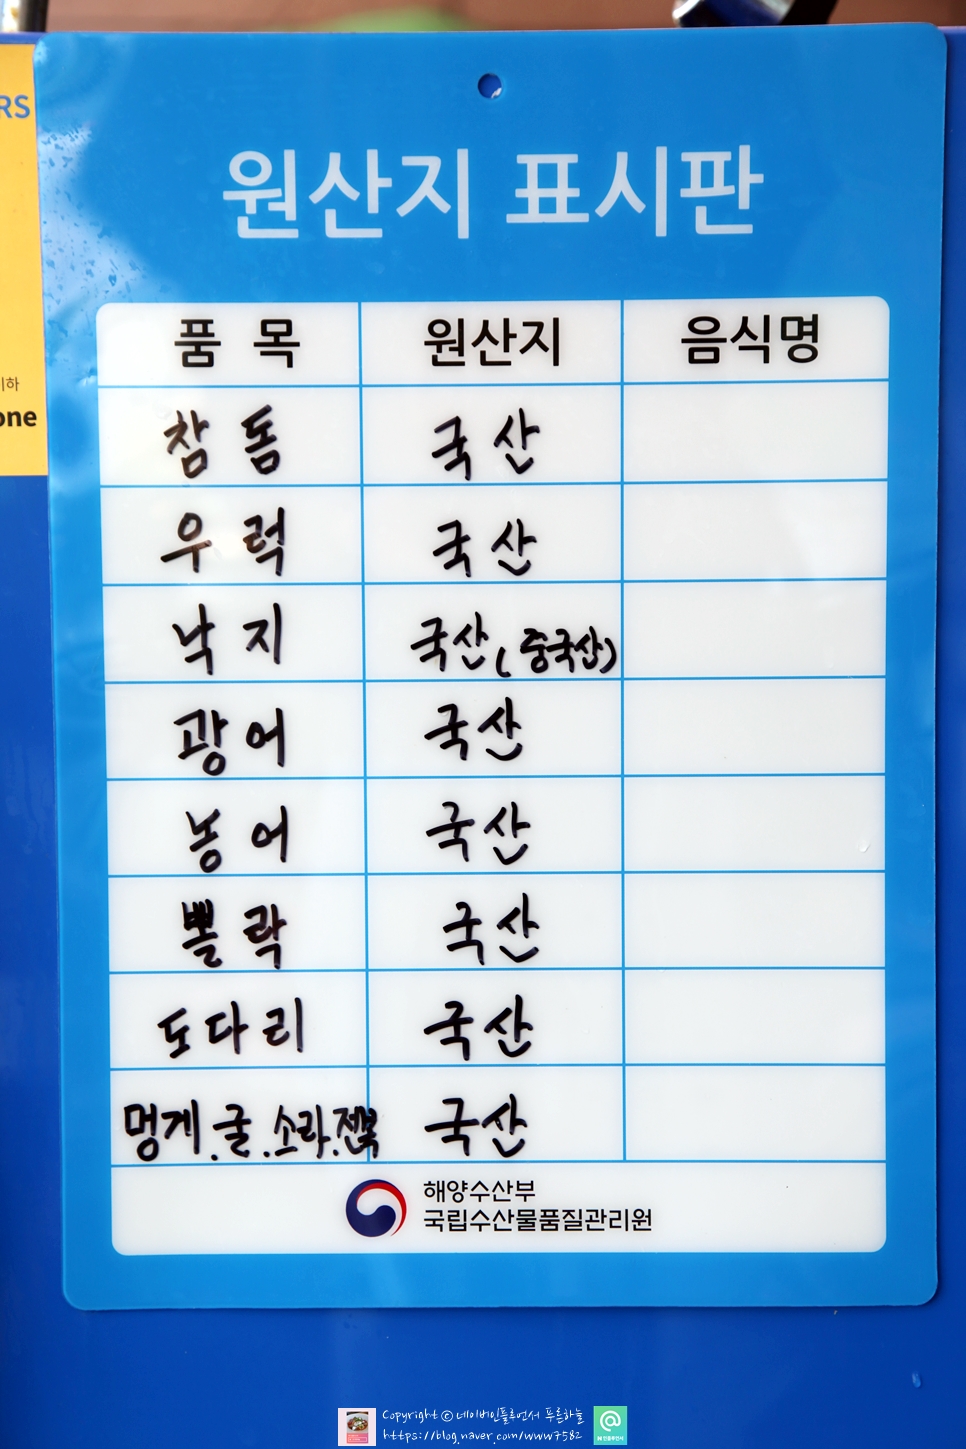 RS
이하
one
원산지 표시판
품 목 원산지 음식명
참 돔 국 산
우 럭 국 산
낙 지 국산(중국산)
광 어 국산
농 어 국산
뽈 락 국산
도다리 국산
멍게.굴.소라.전복 국산
해양수산부
국립수산물품질관리원
Copyright © 네이버인플루언서 푸른하늘
https://blog.naver.com/www7582